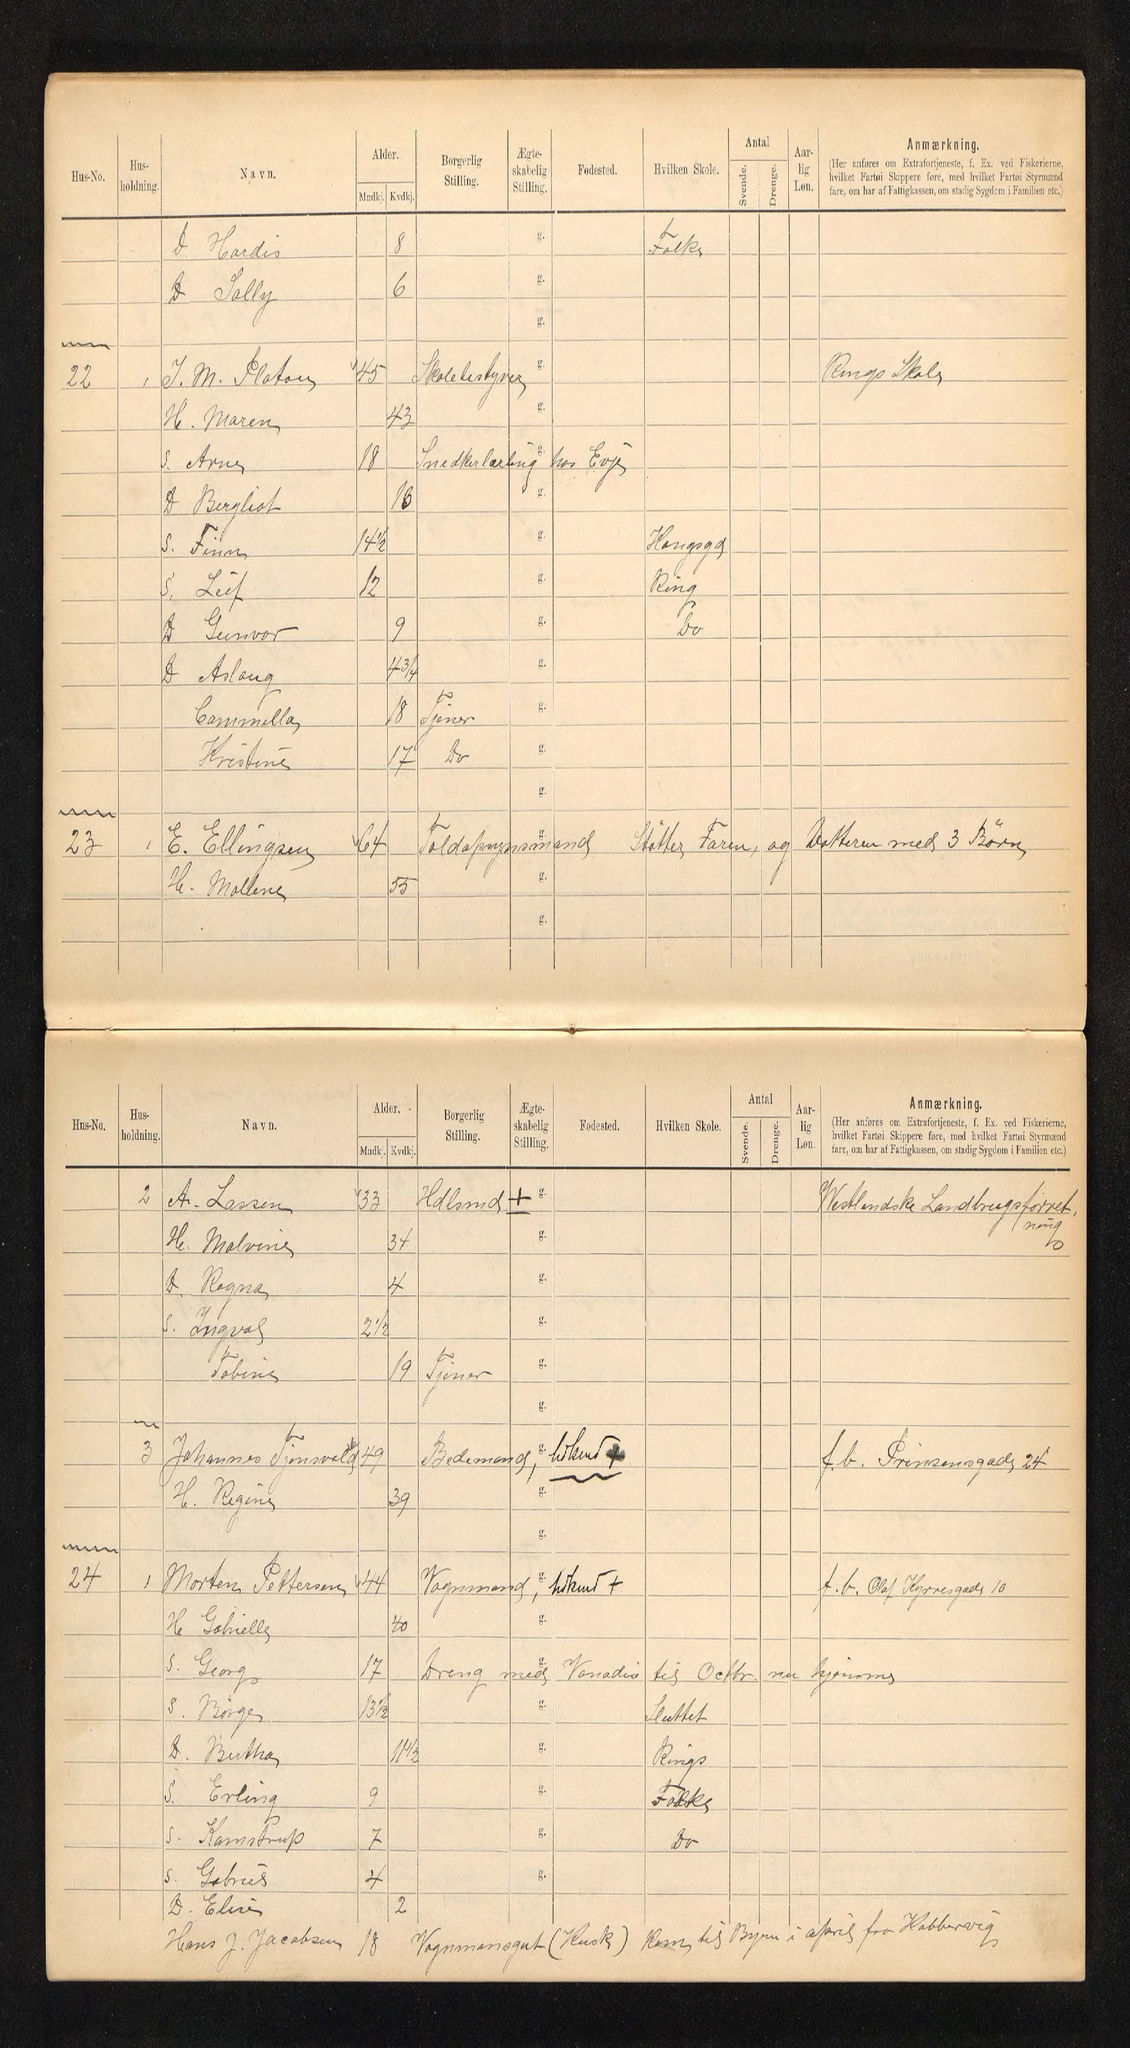 Hus-No. Hus-holdning. Navn. Alder. Mndkj. Kvdkj. Borgerlig Stilling. Ægte-skabelig Stilling. Fødested. Hvilken Skole. Antal Svende. Drenge. Aar-lig Løn. Anmærkning.
(Her anføres om Extrafortjeneste, f. Ex. ved Fiskerierne,
hvilket Fartøi Skippere føre, med hvilket Fartøi Styrmænd
fare, om har af Fattigkassen, om stadig Sygdom i Familien etc.)
D Hardis 8 g. Folke
D Solly 6 g.
g.
22 1 J. M. Platou 45 Skolebestyrer g. Rings Skole
H. Maren 43 g.
S. Arne 18 Snedkerlærling g. hos Evje
D Bergliot 16 g.
S. Finn 14 1/2 g. Kongsgd
S. Leif 12 g. Ring
D Gunvor 9 g. Do
D Aslaug 4 3/4 g.
Cammilla 18 Tjener g.
Kristine 17 Do g.
g.
23 1 E. Ellingsen 64 Toldopsynsmand g. Støtter Faren, og Datteren med 3 Børn
H. Mallene 55 g.
g.
Hus-No. Hus-holdning. Navn. Alder. Mndkj. Kvdkj. Borgerlig Stilling. Ægte-skabelig Stilling. Fødested. Hvilken Skole. Antal Svende. Drenge. Aar-lig Løn. Anmærkning.
(Her anføres om Extrafortjeneste, f. Ex. ved Fiskerierne,
hvilket Fartøi Skippere føre, med hvilket Fartøi Styrmænd
fare, om har af Fattigkassen, om stadig Sygdom i Familien etc.)
2 A. Lassen 33 Hdlsmd + g. Westlandske Landbrugsforret,
ning
H. Malvine 34 g.
D. Ragna 4 g.
S. Ingval 2 1/2 g.
Tobine 19 Tjener g.
g.
3 Johannes Tjensvold 49 Bedemand, g. + f. b. Prinsensgade 24
H. Regine 39 g.
g.
24 1 Morten Pettersen 44 Vognmand, g. + f. b. Olaf Kyrresgade 10
H Gabrielle 40 g.
S. Georg 17 Dreng med g. Vanadis til Octbr. nu hjemme
S. Børge 13 1/2 g. Sluttet
D. Bertha 11 1/2 g. Rings
S. Erling 9 g. Folke
S. Kamstrup 7 g. Do
S. Gabriel 4 g.
D. Elise 2
Hans J. Jacobsen 18 Vognmansgut (Kusk) Kom til Byen i april fra Kobbervig